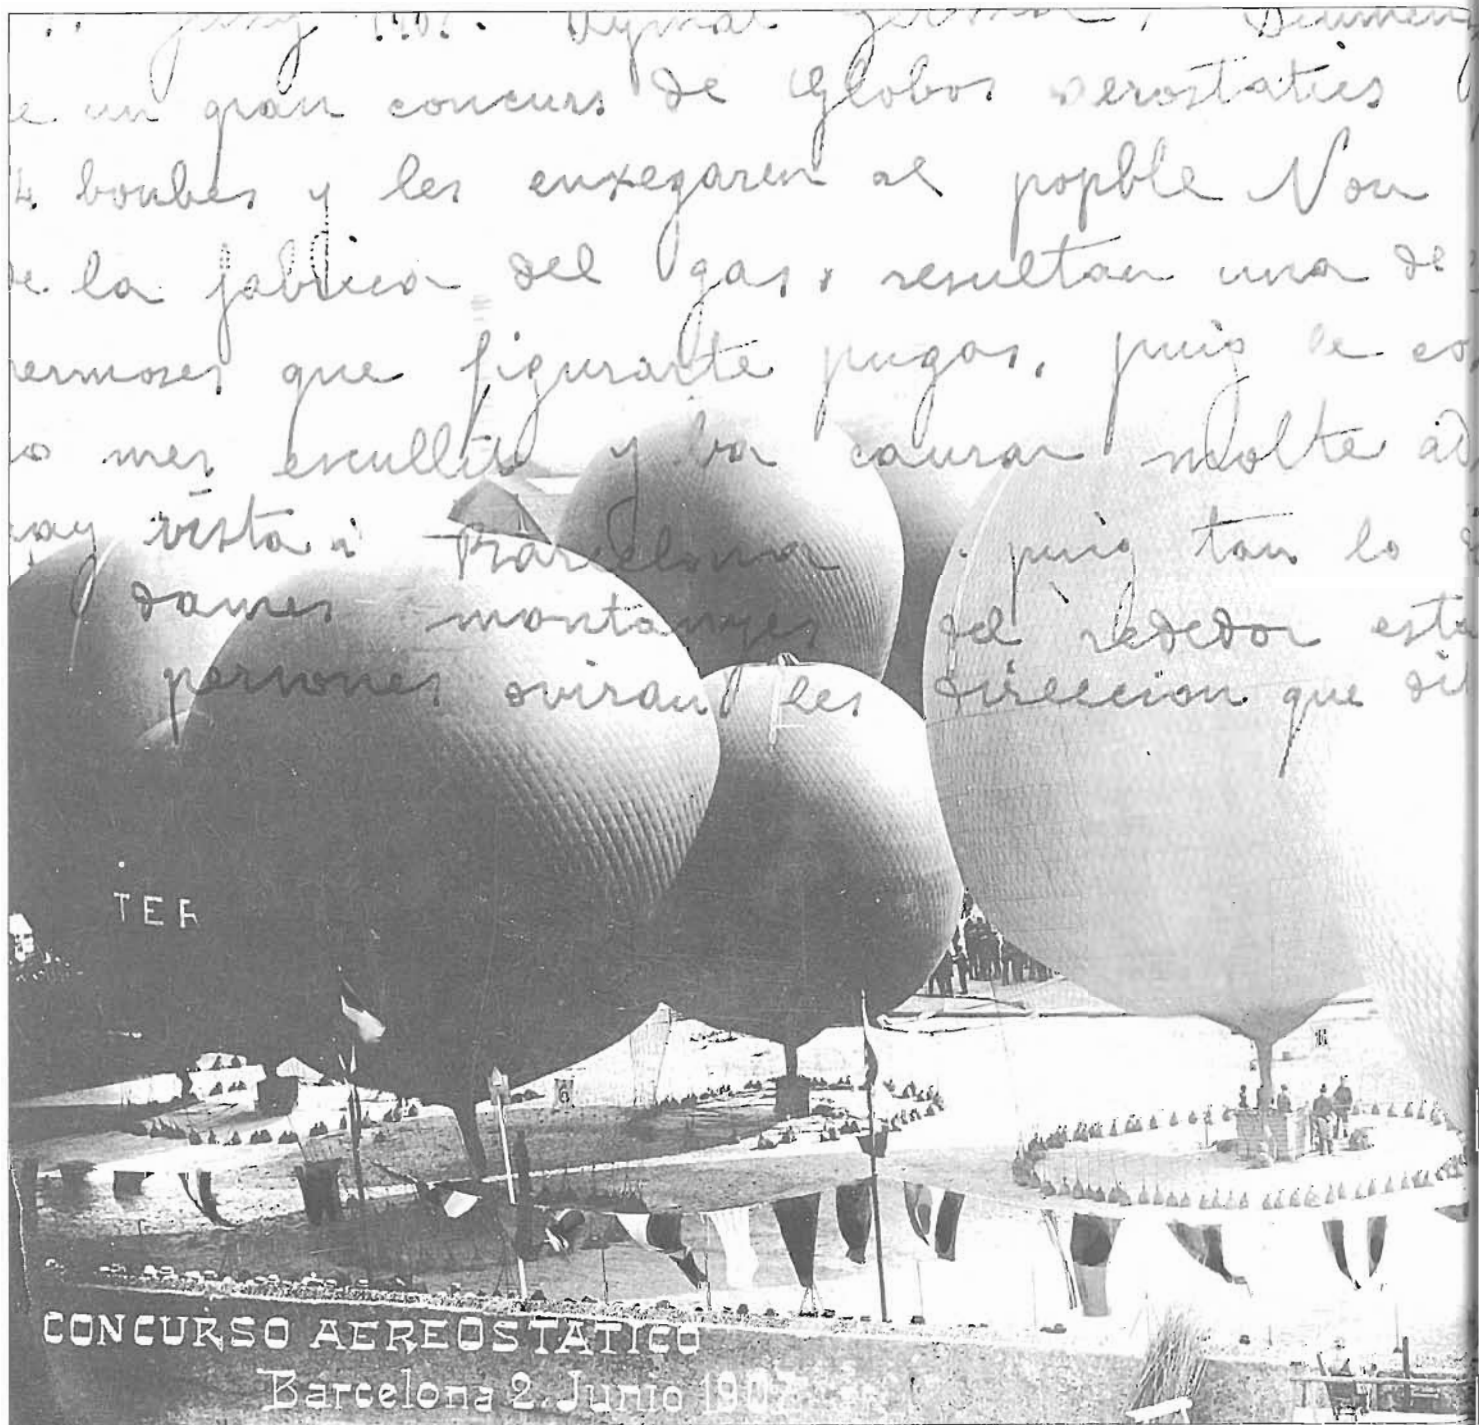 juny 1907. Aymat germà,
un gran concurs de Globos aerostatics
4 bonbes y les enxegaren al popble Nou
de la fabrica del gas, resultan una de
ermoses que figurarte pugas, puig le
mes escullit y ba causar molte
vista a Barcelona puig tan lo
dames montanyes del rededor
persones oviran les direccion que
TER
CONCURSO AEREOSTATICO
Barcelona 2. Junio 1907